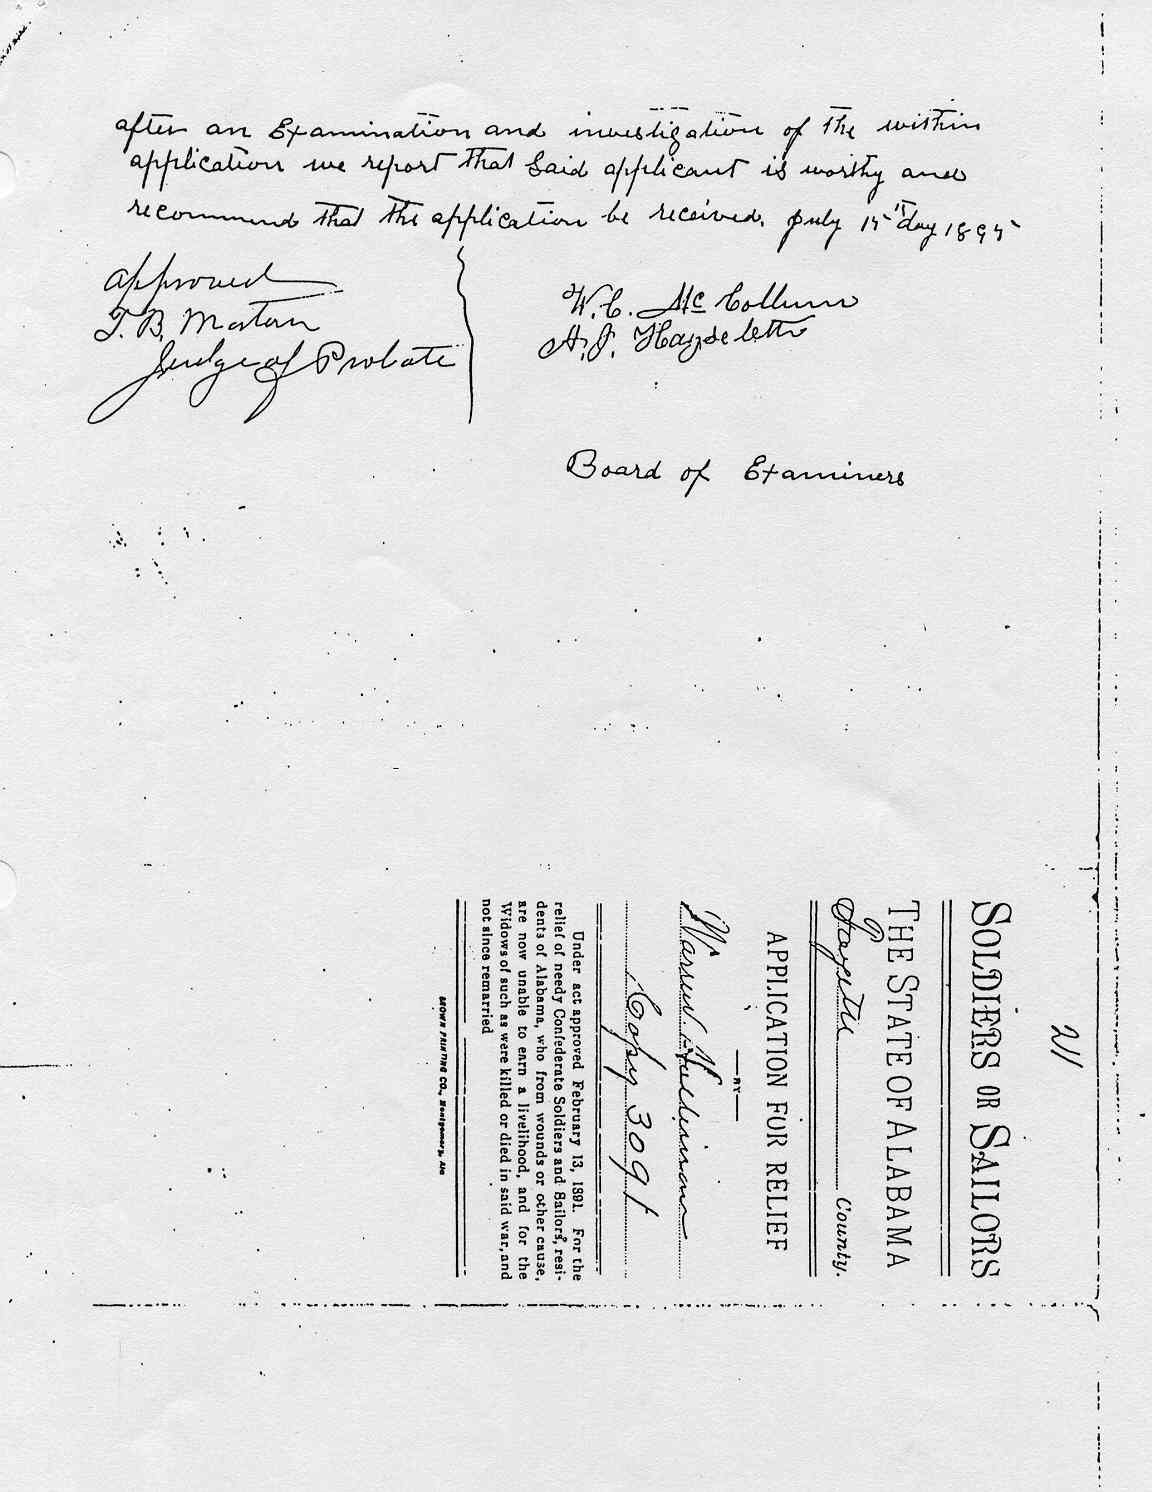 after an Examination and investigation of the within
application we report that Said applicant is worthy and
recommend that the application be received. July 15th day 1895
approved
T. B.
Judge of Probate
W. C. McCollum
A. J.
Board of Examiners
211
SOLDIERS OR SAILORS
THE STATE OF ALABAMA
Fayette County.
APPLICATION FOR RELIEF
—BY—
Warren
Copy 3091
Under act approved February 13, 1891. For the
relief of needy Confederate Soldiers and Sailors, resi-
dents of Alabama, who from wounds or other cause,
are now unable to earn a livelihood, and for the
Widows of such as were killed or died in said war, and
not since remarried
BROWN PRINTING CO., Montgomery, Ala